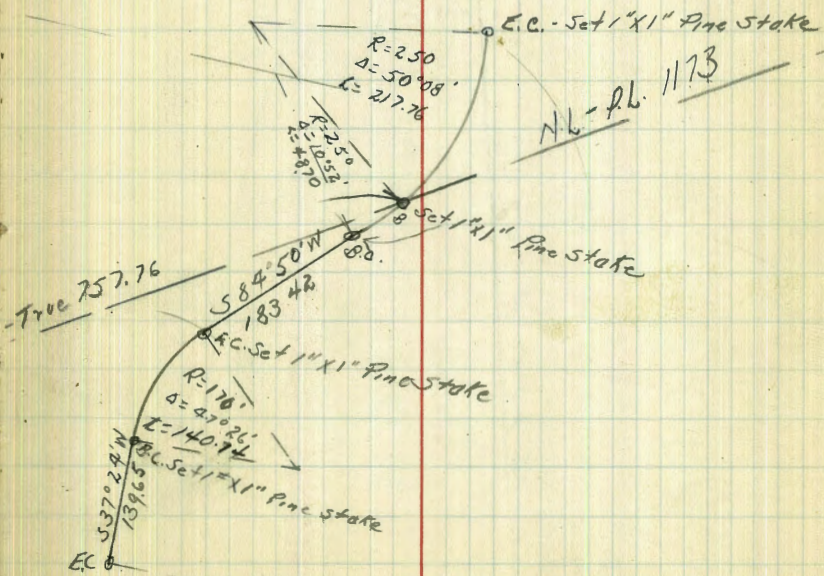 E.C. - Set 1"X1" Pine Stake
R=250
Δ=50°08'
L=217.76
N.L - P.L. 1173
R=250
Δ=10°52'
L=48.70
B
Set 1"X1" Pine Stake
B.C.
S 84°50'W
183 42
-True 757.76
E.C. Set 1"X1" Pine Stake
R=170'
Δ=47°26'
L=140.74
B.C. Set 1"X1" Pine Stake
S37°24'W
139.65
E.C